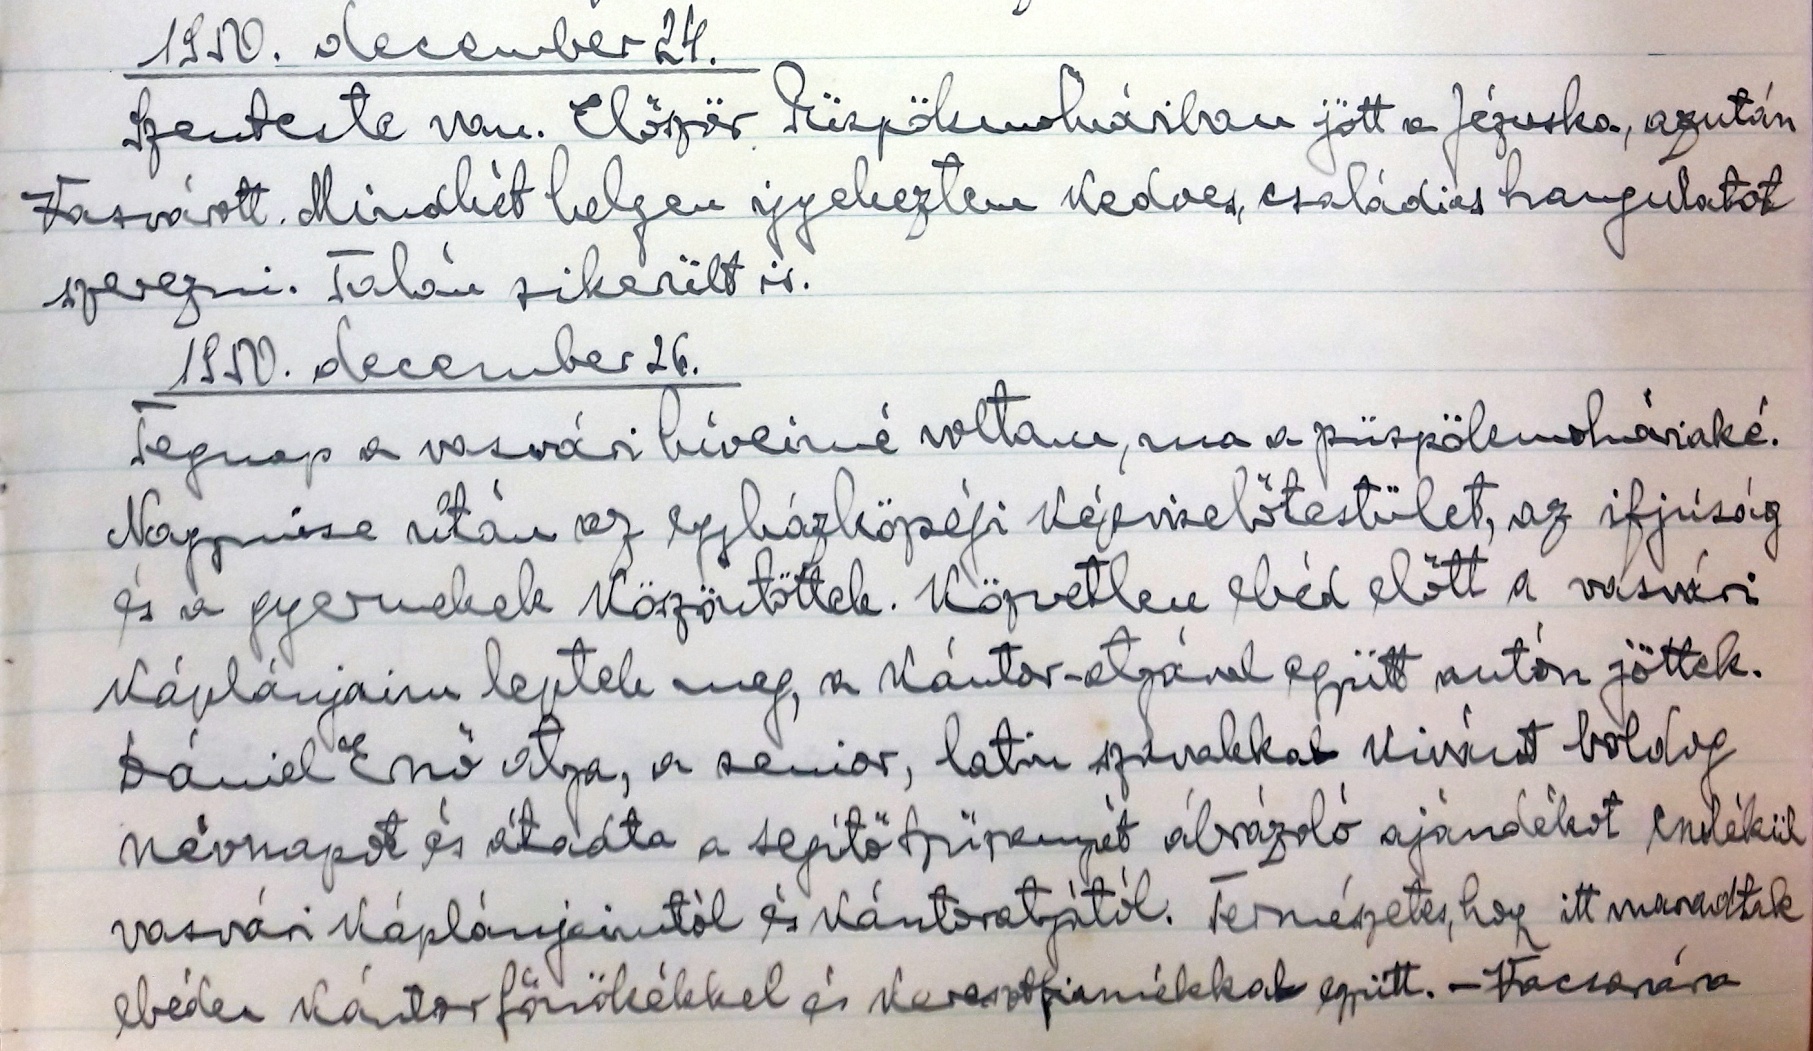 1950. december 24.
Szenteste van. Először Püspökmolnáriban jött a Jézuska, azután
Vasvárott. Mindkét helyen igyekeztem kedves, családias hangulatot
szerezni. Talán sikerült is.
1950. december 26.
Tegnap a vasvári híveimé voltam, ma a püspökmolnáriaké.
Nagymise után az egyházközségi képviselőtestület, az ifjúság
és a gyermekek köszöntöttek. Közvetlen ebéd előtt a vasvári
káplánjaim leptek meg, a kántor-atyával együtt autón jöttek.
Dániel Ernő atya, a senior, latin szavakkal kívánt boldog
névnapot és átadta a segítő Szűzanyát ábrázoló ajándékot emlékül
vasvári káplánjaimtól és kántoratyjától. Természetes, hogy itt maradtak
ebéden kántor főnökékkel és keresztfiamékkal együtt. – Vacsorára